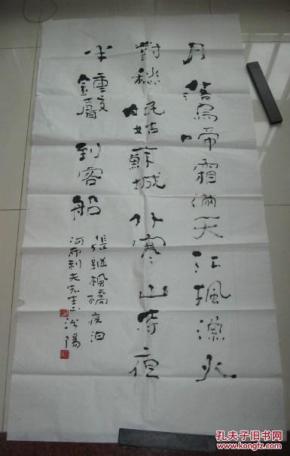 月落烏啼霜滿天江楓漁火
對愁眠姑蘇城外寒山寺夜
半鐘聲到客船
張繼楓橋夜泊
先生正
陽
孔夫子旧书网